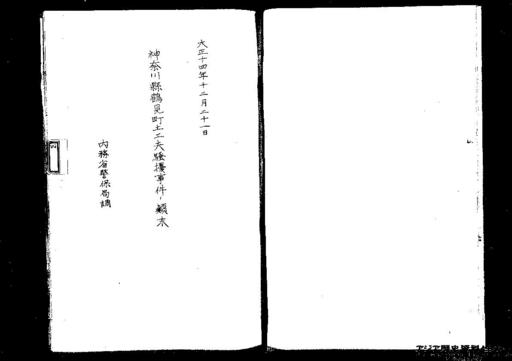 大正十四年十二月二十一日
神奈川縣鶴見町土工夫騒擾事件ノ顛末
内務省警保局調
アジア歴史資料センター